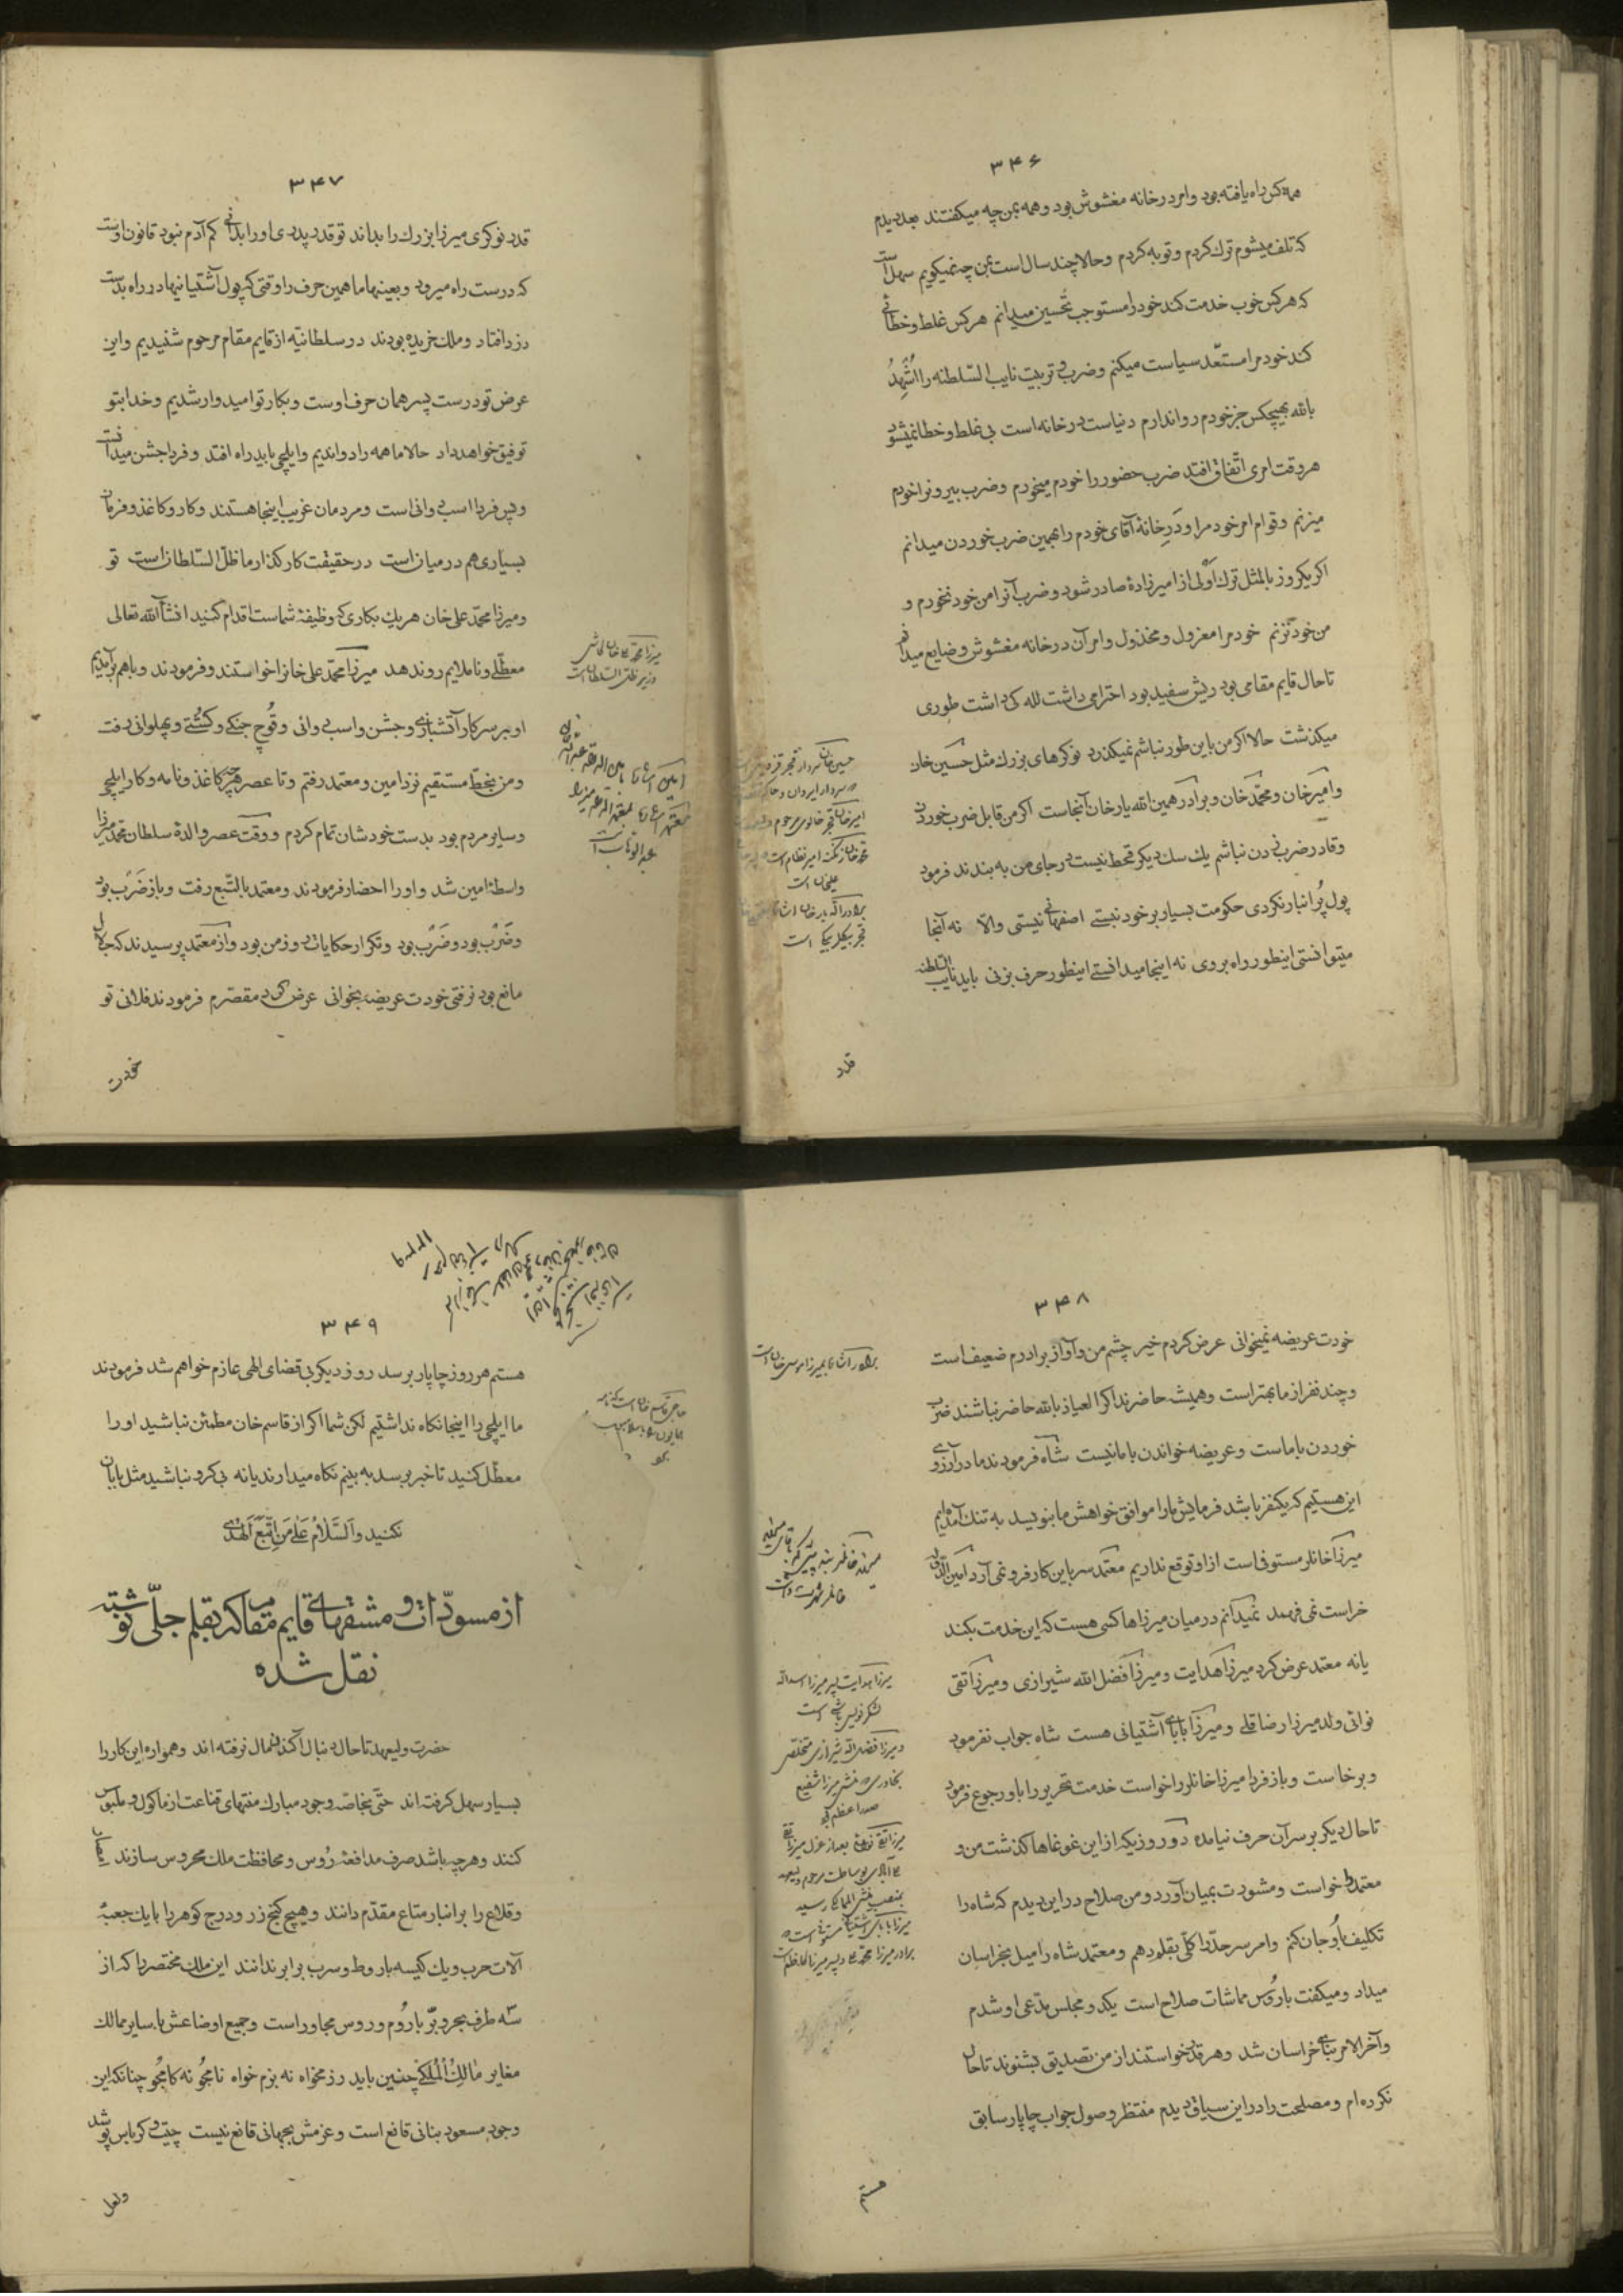 ۳۴۶
همه کس راه یافته بود و امر درخانه مغشوش بود و همه بمن چه میکفتند بعد دیدم
که تلف میشوم ترک کردم و توبه کردم و حالا چند سال است بمن چه نمیکویم سهل است
که هر کس خوب خدمت کند خود را مستوجب تحسین میدانم هر کس غلط و خطائی
کند خود مرا مستعد سیاست میکنم و ضرب و تربیت نایب السلطنه را اُشهِدُ
بالله بهیچکس جز خودم روا ندارم دنیاست درخانه است بی غلط و خطا نمیشود
هر وقت امری اتّفاق افتد ضرب حضور را خودم میخورم و ضرب بیرون را خودم
میزنم و قوام امر خود مرا و دَرِخانهٔ آقای خودم را بهمین ضرب خوردن میدانم
اکر یکروز بالمثل ترک اَولی از امیرزادهٔ صادر شود و ضرب آنرا من خود نخورم و
من خود نزنم خود مرا معزول و مخذول و امر آن درخانه مغشوش و ضایع میدانم
تا حال قایم مقامی بود ریش سفید بود احترامی داشت لله کی داشت طوری
میکذشت حالا اکر من باین طور نباشم نمیکذرد نوکرهای بزرک مثل حسین خان
و امیرخان و محمّد خان و برادر همین الله یار خان آنجاست اکر من قابل ضرب خوردن
و قادر ضرب زدن نباشم یک سک دیکر قحط نیست در جای من به بندند فرمود
پول پُر انبار نکردی حکومت بسیار بر خود نبستی اصفهانی نیستی والّا نه آنجا
میتوانستی اینطور راه بروی نه اینجا میدانستی اینطور حرف بزنی باید نایب السلطنه
امیرخان قجر خالوی مرحوم
محمد خان زنکنه امیر نظام است
علیخان است
برادر الله یار خان
قجر بیکلربیکی است
قدر
۳۴۷
قدر نوکری میرزا بزرک را بداند تو قدر پدری او را بدانی کم آدم نبود قانون اوست
که درست راه میرود و بعینها ما همین حرف را وقتی که پول آشتیانیها در راه بدست
دزد افتاد و ملک خریده بودند در سلطانیّه از قایم مقام مرحوم شنیدیم و این
عرض تو درست پسر همان حرف اوست و بکار تو امیدوار شدیم و خدا بتو
توفیق خواهد داد حالا ما همه را دواندیم و ایلچی باید راه افتد و فردا جشن میدانست
و پس فردا اسب دوانی است و مردمان غریب اینجا هستند و کار و کاغذ و فرمان
بسیاری هم در میان است در حقیقت کار کذار ما ظلّ السّلطان است تو
و میرزا محمّد علی خان هر یک بکاری که وظیفهٔ شماست اقدام کنید انشآءالله تعالی
معطّلی و ناملایم روندهد میرزا محمّد علی خانرا خواستند و فرمودند و باهم برآمدیم
او بر سر کار آتشبازی و جشن و اسب دوانی و قُوچ جنکی و کشتی و پهلوانی رفت
و من بخطّ مستقیم نزد امین و معتمد رفتم و تا عصر هر چه کاغذ و نامه و کار ایلچی
و سایر مردم بود بدست خودشان تمام کردم و وقت عصر والدهٔ سلطان محمد میرزا
واسطهٔ امین شد و او را احضار فرمودند و معتمد بالتّبع رفت و باز ضَرَب بود
و ضَرَب بود و ضَرَب بود و تکرار حکایات روز من بود و از معتمد پرسیدند که حالا
مانع بود نرفتی خودت عریضه بخوانی عرض کرد مقصّرم فرمودند فلانی تو
وزیر ظل السلطان است
عبدالوهاب است
خودت
۳۴۸
خودت عریضه نمیخوانی عرض کردم خیر چشم من و آواز برادرم ضعیف است
و چند نفر از ما بهتر است و همیشه حاضرند اکر العیاذ بالله حاضر نباشند ضرب
خوردن با ماست و عریضه خواندن با ما نیست شاه فرمودند ما در آرزوی
این هستیم که یکنفر باشد فرمایش ما را موافق خواهش ما بنویسد به تنک آمده‌ایم
میرزا خانلر مستوفی است از او توقع نداریم معتمد سر باین کار فرو نمی آرد امین الدوله
خراست نمی فهمد نمیدانم در میان میرزاها کسی هست که این خدمت بکند
یا نه معتمد عرض کرد میرزا هدایت و میرزا فضل الله شیرازی و میرزا تقی
نوائی ولد میرزا رضا قلی و میرزا بابای آشتیانی هست شاه جواب نفرمود
و برخاست و باز فردا میرزا خانلر را خواست خدمت تحریر را باو رجوع فرمود
تا حال دیکر بر سر آن حرف نیامده دو روز یکه از این غوغاها کذشت من و
معتمد را خواست و مشورت بمیان آورد و من صلاح در این دیدم که شاه را
تکلیف باوجان کنم و امر سرحدّ را کلّی بقلم دهم و معتمد شاه را میل بخراسان
میداد و میکفت با رُوس مماشات صلاح است یک دو مجلس مدّعی او شدم
و آخرالامر بنای خراسان شد و هر قدر خواستند از من تصدیق بشنوند تا حال
نکرده‌ام و مصلحت را در این سیاق دیدم منتظر وصول جواب چاپار سابق
میرزا هدایت پسر میرزا اسدالله
لشکر نویس باشی است
و میرزا فضل الله شیرازی متخلص
بخاوری منشی میرزا شفیع
صدر اعظم
بمنصب منشی الممالکی رسید
هستم
۳۴۹
هستم هر روز چاپار برسد روز دیکر بی قضای الهی عازم خواهم شد فرمودند
ما ایلچی را اینجا نکاه نداشتیم لکن شما اکر از قاسم خان مطمئن نباشید او را
معطّل کنید تا خبر برسد به بینم نکاه میدارند یا نه بی کرو نباشید مثل بابان
نکنید وَالسَّلامُ عَلی مَنِ اتَّبَعَ الهُدی
از مسوّدات و مشقهای قایم مقام که بقلم جلّی نوشته
نقل شده
حضرت ولیعهد تا حال دنبال آکندن مال نرفته اند و همواره این کار را
بسیار سهل کرفته اند حتی بخاصّه وجود مبارک منتهای قناعت از ماکول و ملبوس
کنند و هر چه باشد صرف مدافعهٔ رُوس و محافظت ملک محروس سازند
و قلاع را بر انبار متاع مقدّم دانند و هیچ کنج زر و درج کوهر را با یک جعبهٔ
آلات حرب و یک کیسه باروط و سرب برابر ندانند این ملک مختصر را که از
سه طرف بحر و برّ با رُوم و روس مجاور است و جمیع اوضاعش با سایر ممالک
مغایر مالِکُ المُلکی چنین باید رزمخواه نه بزم خواه نامجُو نه کامجُو چنانکه این
وجود مسعود بنانی قانع است و عزمش بجهانی قانع نیست چیت و کرباس پوشد
ولعل